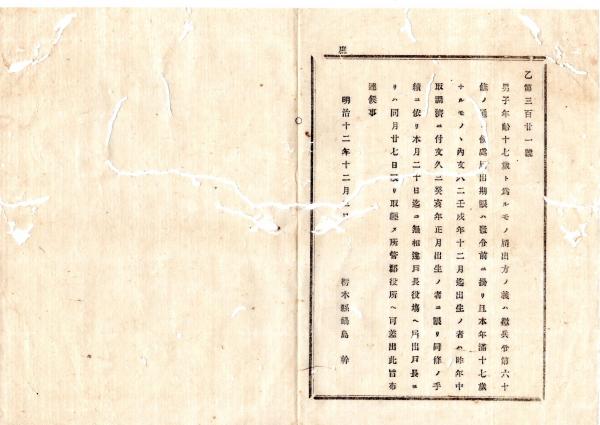 庶
乙第三百廿一號
男子年齢十七歳ト爲ルモノ屆出方ノ義ハ徴兵令第六十
條ノ通 候處屆出期限ハ發令前ニ掛リ且本年滿十七歳
ナルモノヽ內文久二壬戌年十二月迄出生ノ者ハ昨年中
取調濟ニ付文久三癸亥年正月出生ノ者ニ限リ同條ノ手
續ニ依リ本月二十日迄ニ無相違戸長役場ヘ屆出戸長ニ
リハ同月廿七日限リ取纒メ所管郡役所ヘ可差出此旨布
達候事
明治十二年十二月 日
栃木縣 鍋島 幹